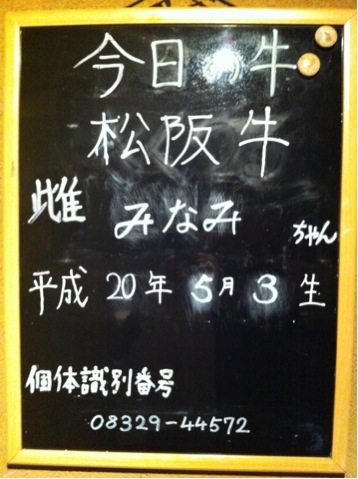 今日の牛
松阪牛
雌 みなみ ちゃん
平成20年5月3生
個体識別番号
08329-44572